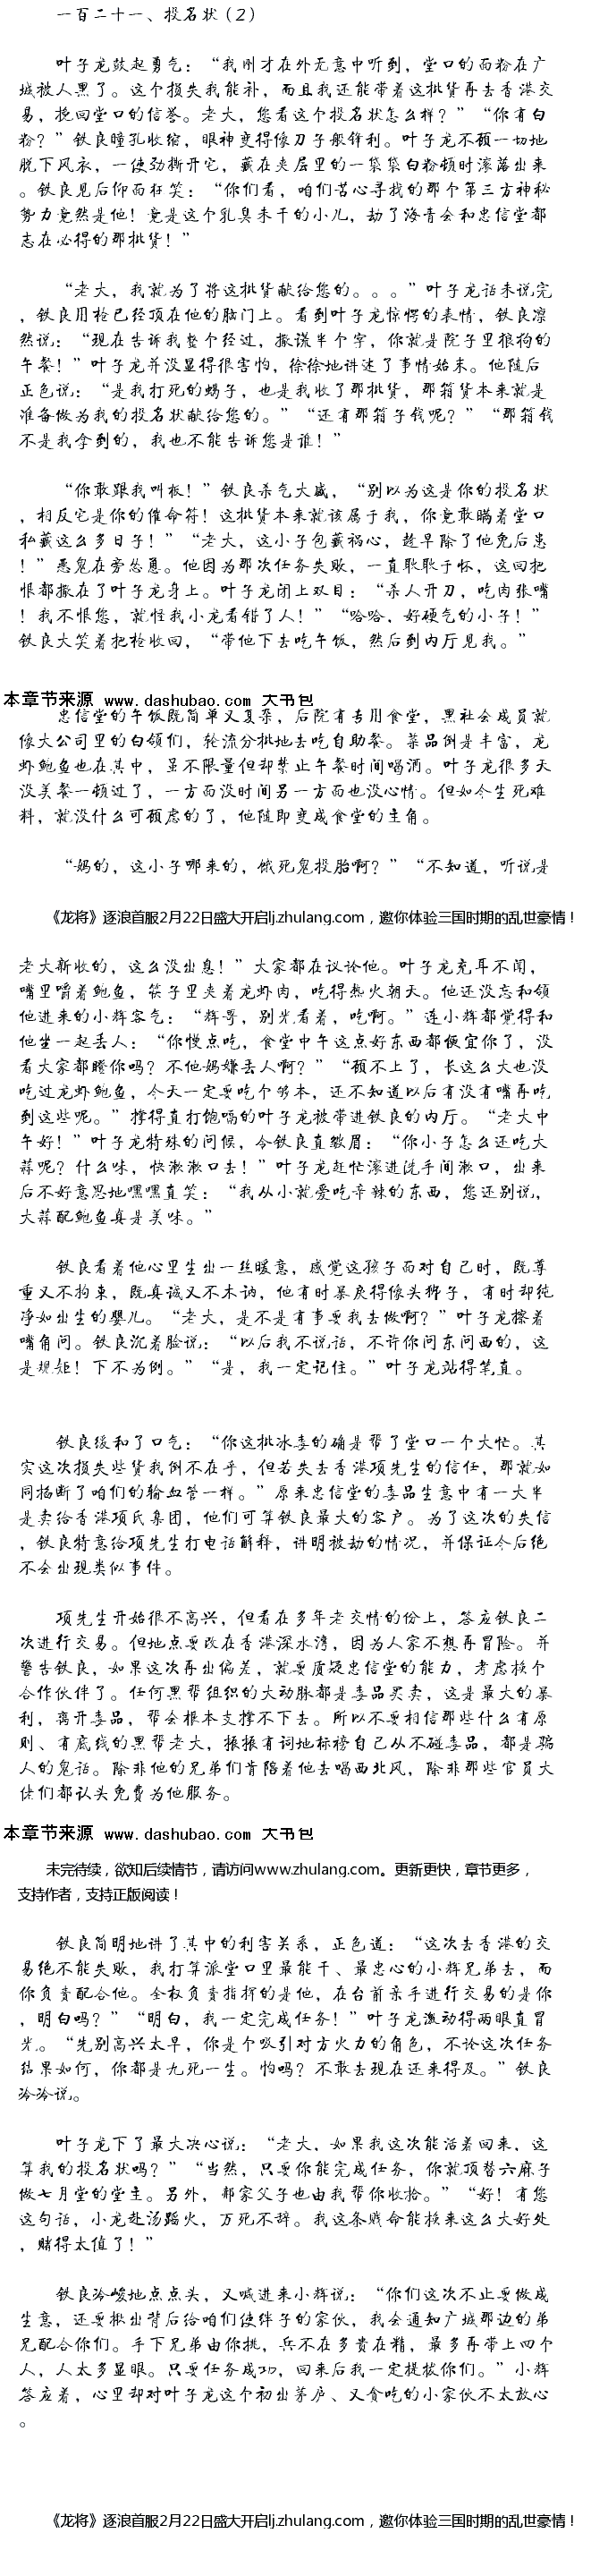 一百二十一、投名状（2）
叶子龙鼓起勇气：“我刚才在外无意中听到，堂口的面粉在广
城被人黑了。这个损失我能补，而且我还能带着这批货再去香港交
易，挽回堂口的信誉。老大，您看这个投名状怎么样？”“你有白
粉？”铁良瞳孔收缩，眼神变得像刀子般锋利。叶子龙不顾一切地
脱下风衣，一使劲撕开它，藏在夹层里的一袋袋白粉顿时滚落出来
。铁良见后仰面狂笑：“你们看，咱们苦心寻找的那个第三方神秘
势力竟然是他！竟是这个乳臭未干的小儿，劫了海青会和忠信堂都
志在必得的那批货！”
“老大，我就为了将这批货献给您的。。。”叶子龙话未说完
，铁良用枪已经顶在他的脑门上。看到叶子龙惊愕的表情，铁良凛
然说：“现在告诉我整个经过，撒谎半个字，你就是院子里狼狗的
午餐！”叶子龙并没显得很害怕，徐徐地讲述了事情始末。他随后
正色说：“是我打死的蝎子，也是我收了那批货，那箱货本来就是
准备做为我的投名状献给您的。”“还有那箱子钱呢？”“那箱钱
不是我拿到的，我也不能告诉您是谁！”
“你敢跟我叫板！”铁良杀气大盛，“别以为这是你的投名状
，相反它是你的催命符！这批货本来就该属于我，你竟敢瞒着堂口
私藏这么多日子！”“老大，这小子包藏祸心，趁早除了他免后患
！”恶鬼在旁怂恿。他因为那次任务失败，一直耿耿于怀，这回把
恨都撒在了叶子龙身上。叶子龙闭上双目：“杀人开刀，吃肉张嘴
！我不恨您，就怪我小龙看错了人！”“哈哈，好硬气的小子！”
铁良大笑着把枪收回，“带他下去吃午饭，然后到内厅见我。”
本章节来源 www.dashubao.com 大书包
忠信堂的午饭既简单又复杂，后院有专用食堂，黑社会成员就
像大公司里的白领们，轮流分批地去吃自助餐。菜品倒是丰富，龙
虾鲍鱼也在其中，虽不限量但却禁止午餐时间喝酒。叶子龙很多天
没美餐一顿过了，一方面没时间另一方面也没心情。但如今生死难
料，就没什么可顾虑的了，他随即变成食堂的主角。
“妈的，这小子哪来的，饿死鬼投胎啊？”“不知道，听说是
《龙将》逐浪首服2月22日盛大开启lj.zhulang.com，邀你体验三国时期的乱世豪情！
老大新收的，这么没出息！”大家都在议论他。叶子龙充耳不闻，
嘴里嚼着鲍鱼，筷子里夹着龙虾肉，吃得热火朝天。他还没忘和领
他进来的小辉客气：“辉哥，别光看着，吃啊。”连小辉都觉得和
他坐一起丢人：“你慢点吃，食堂中午这点好东西都便宜你了，没
看大家都瞪你吗？不他妈嫌丢人啊？”“顾不上了，长这么大也没
吃过龙虾鲍鱼，今天一定要吃个够本，还不知道以后有没有嘴再吃
到这些呢。”撑得直打饱嗝的叶子龙被带进铁良的内厅。“老大中
午好！”叶子龙特殊的问候，令铁良直皱眉：“你小子怎么还吃大
蒜呢？什么味，快漱漱口去！”叶子龙赶忙滚进洗手间漱口，出来
后不好意思地嘿嘿直笑：“我从小就爱吃辛辣的东西，您还别说，
大蒜配鲍鱼真是美味。”
铁良看着他心里生出一丝暖意，感觉这孩子面对自己时，既尊
重又不拘束，既真诚又不木讷，他有时暴戾得像头狮子，有时却纯
净如出生的婴儿。“老大，是不是有事要我去做啊？”叶子龙擦着
嘴角问。铁良沉着脸说：“以后我不说话，不许你问东问西的，这
是规矩！下不为例。”“是，我一定记住。”叶子龙站得笔直。
铁良缓和了口气：“你这批冰毒的确是帮了堂口一个大忙。其
实这次损失些货我倒不在乎，但若失去香港项先生的信任，那就如
同掐断了咱们的输血管一样。”原来忠信堂的毒品生意中有一大半
是卖给香港项氏集团，他们可算铁良最大的客户。为了这次的失信
，铁良特意给项先生打电话解释，讲明被劫的情况，并保证今后绝
不会出现类似事件。
项先生开始很不高兴，但看在多年老交情的份上，答应铁良二
次进行交易。但地点要改在香港深水湾，因为人家不想再冒险。并
警告铁良，如果这次再出偏差，就要质疑忠信堂的能力，考虑换个
合作伙伴了。任何黑帮组织的大动脉都是毒品买卖，这是最大的暴
利，离开毒品，帮会根本支撑不下去。所以不要相信那些什么有原
则、有底线的黑帮老大，振振有词地标榜自己从不碰毒品，都是骗
人的鬼话。除非他的兄弟们肯陪着他去喝西北风，除非那些官员大
佬们都认头免费为他服务。
本章节来源 www.dashubao.com 大书包
未完待续，欲知后续情节，请访问www.zhulang.com。更新更快，章节更多，
支持作者，支持正版阅读！
铁良简明地讲了其中的利害关系，正色道：“这次去香港的交
易绝不能失败，我打算派堂口里最能干、最忠心的小辉兄弟去，而
你负责配合他。全权负责指挥的是他，在台前亲手进行交易的是你
，明白吗？”“明白，我一定完成任务！”叶子龙激动得两眼直冒
光。“先别高兴太早，你是个吸引对方火力的角色，不论这次任务
结果如何，你都是九死一生。怕吗？不敢去现在还来得及。”铁良
冷冷说。
叶子龙下了最大决心说：“老大，如果我这次能活着回来，这
算我的投名状吗？”“当然，只要你能完成任务，你就顶替六麻子
做七月堂的堂主。另外，郝家父子也由我帮你收拾。”“好！有您
这句话，小龙赴汤蹈火，万死不辞。我这条贱命能换来这么大好处
，赌得太值了！”
铁良冷峻地点点头，又喊进来小辉说：“你们这次不止要做成
生意，还要揪出背后给咱们使绊子的家伙，我会通知广城那边的弟
兄配合你们。手下兄弟由你挑，兵不在多贵在精，最多再带上四个
人，人太多显眼。只要任务成功，回来后我一定提拔你们。”小辉
答应着，心里却对叶子龙这个初出茅庐、又贪吃的小家伙不太放心
。
《龙将》逐浪首服2月22日盛大开启lj.zhulang.com，邀你体验三国时期的乱世豪情！